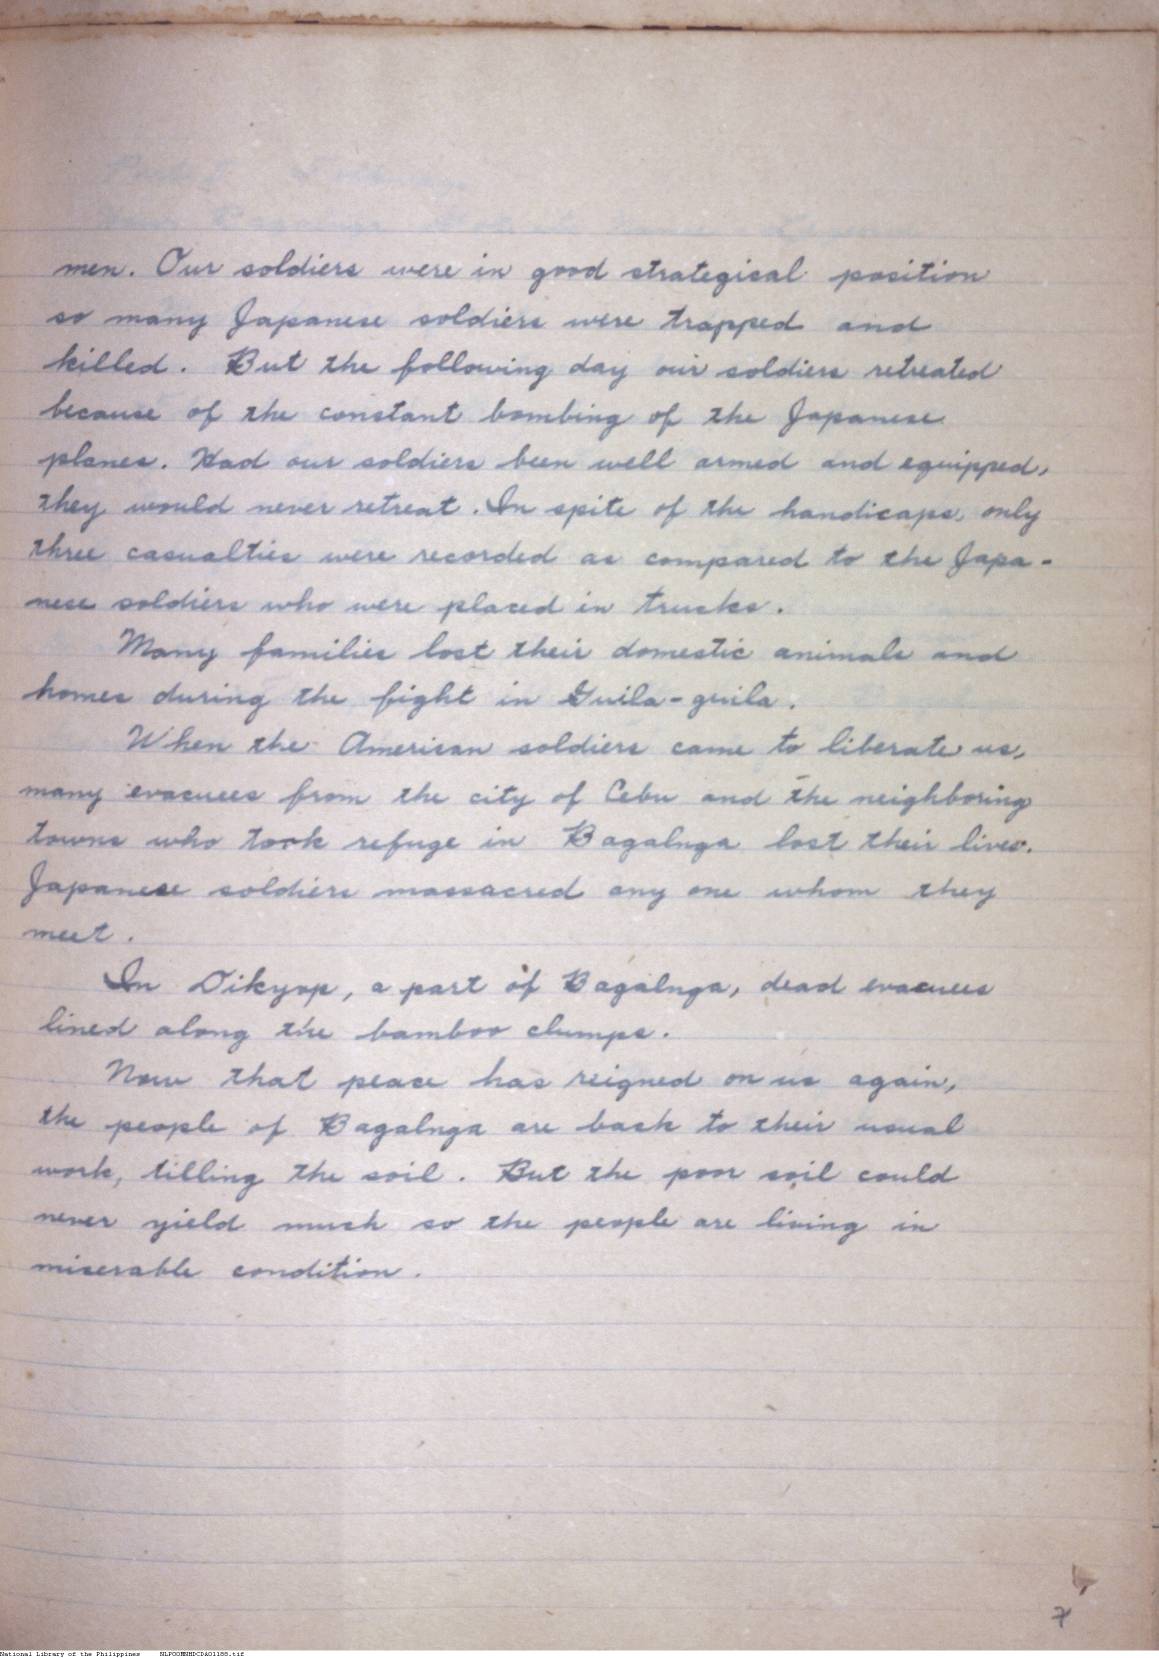 men. Our soldiers were in good strategical position
so many Japanese soldiers were trapped and
killed. But the following day our soldiers retreated
because of the constant bombing of the Japanese
planes. Had our soldiers been well armed and equipped,
they would never retreat. In spite of the handicaps, only
three casualties were recorded as compared to the Japa-
nese soldiers who were placed in trucks.
Many families lost their domestic animals and
homes during the fight in Guila-guila.
When the American soldiers came to liberate us,
many evacuees from the city of Cebu and the neighboring
towns who took refuge in Bagalnga lost their lives.
Japanese soldiers massacred any one whom they
meet.
In Dikyop, a part of Bagalnga, dead evacuees
lined along the bamboo clumps.
Now that peace has reigned on us again,
the people of Bagalnga are back to their usual
work, tilling the soil. But the poor soil could
never yield much so the people are living in
miserable condition.
7
National Library of the Philippines NLPOOMNHDCDA01188.tif